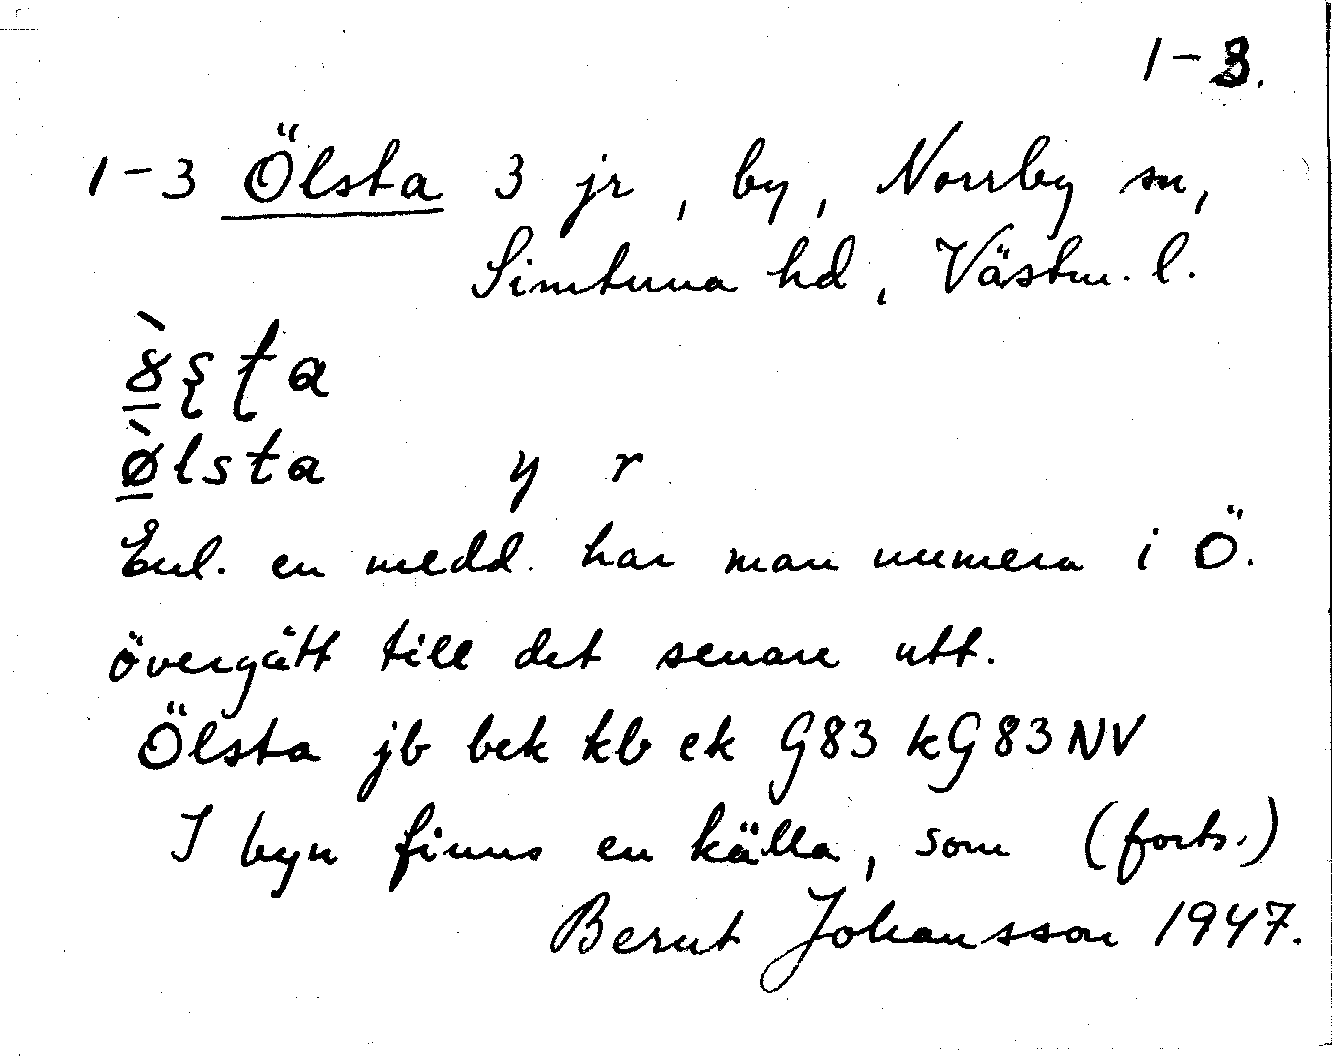 1-3.
1-3 Ölsta 3 jr, by, Norrby sn,
Simtuna hd, Västm. l.
ølsta y r
Enl. en medd. har man numera i Ö.
övergått till det senare utt.
Ölsta jb bek kb ek G83 kG83NV
I byn finns en källa, som (forts.)
Bernt Johansson 1947.